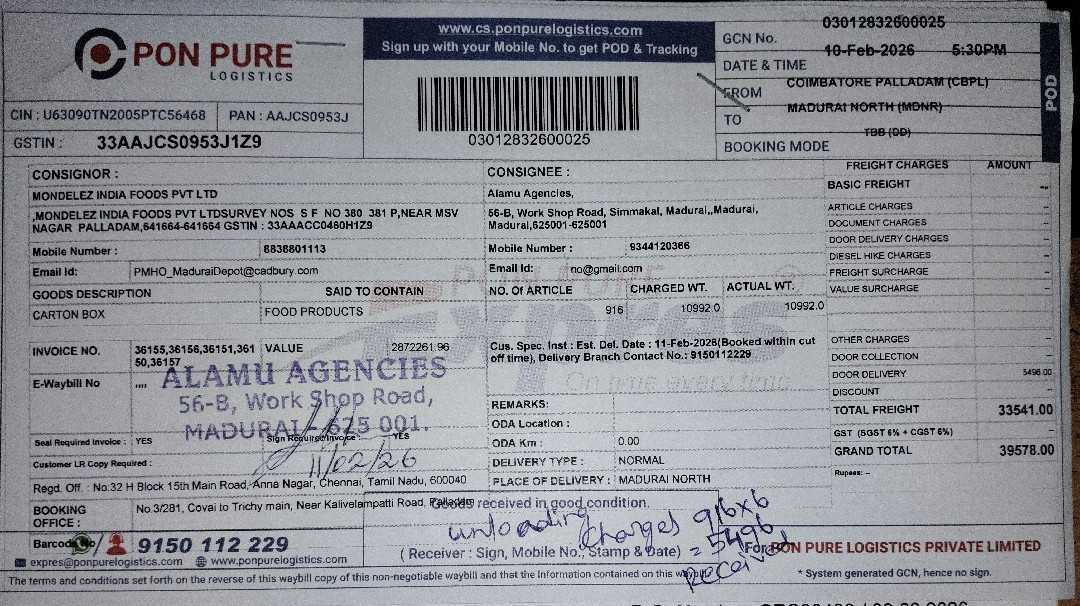 PON PURE
LOGISTICS
www.cs.ponpurelogistics.com
Sign up with your Mobile No. to get POD & Tracking
03012832600025
GCN No. 03012832600025
DATE & TIME 10-Feb-2026 5:30PM
FROM COIMBATORE PALLADAM (CBPL)
TO MADURAI NORTH (MDNR)
BOOKING MODE TBB (DD)
POD
CIN : U63090TN2005PTC56468 PAN : AAJCS0953J
GSTIN : 33AAJCS0953J1Z9
CONSIGNOR :
MONDELEZ INDIA FOODS PVT LTD
,MONDELEZ INDIA FOODS PVT LTDSURVEY NOS S F NO 380 381 P,NEAR MSV
NAGAR PALLADAM,641664-641664 GSTIN : 33AAACC0460H1Z9
Mobile Number : 8838801113
Email Id: PMHO_MaduraiDepot@cadbury.com
CONSIGNEE :
Alamu Agencies,
56-B, Work Shop Road, Simmakal, Madurai,,Madurai,
Madurai,625001-625001
Mobile Number : 9344120366
Email Id: no@gmail.com
GOODS DESCRIPTION SAID TO CONTAIN NO. Of ARTICLE CHARGED WT. ACTUAL WT.
CARTON BOX FOOD PRODUCTS 916 10992.0 10992.0
PON PURE
Expres
On time every time
INVOICE NO. 36155,36156,36151,361
50,36157
VALUE 2872261.96
E-Waybill No ,,,,
ALAMU AGENCIES
56-B, Work Shop Road,
MADURAI - 625 001.
Seal Required Invoice : YES Sign Required Invoice : YES
11/02/26
Customer LR Copy Required :
Cus. Spec. Inst : Est. Del. Date : 11-Feb-2026(Booked within cut
off time), Delivery Branch Contact No.: 9150112229
REMARKS:
ODA Location :
ODA Km : 0.00
DELIVERY TYPE : NORMAL
PLACE OF DELIVERY : MADURAI NORTH
FREIGHT CHARGES AMOUNT
BASIC FREIGHT --
ARTICLE CHARGES --
DOCUMENT CHARGES --
DOOR DELIVERY CHARGES --
DIESEL HIKE CHARGES --
FREIGHT SURCHARGE --
VALUE SURCHARGE --
OTHER CHARGES --
DOOR COLLECTION --
DOOR DELIVERY 5496.00
DISCOUNT --
TOTAL FREIGHT 33541.00
GST (SGST 6% + CGST 6%) --
GRAND TOTAL 39578.00
Rupees: --
Regd. Off. : No.32 H Block 15th Main Road, Anna Nagar, Chennai, Tamil Nadu, 600040
BOOKING
OFFICE :
No.3/281, Covai to Trichy main, Near Kalivelampatti Road, Palladam
Goods received in good condition.
unloading charges 916x6
= 5496
Received
( Receiver : Sign, Mobile No., Stamp & Date)
Barcode No
9150 112 229
expres@ponpurelogistics.com www.ponpurelogistics.com
For PON PURE LOGISTICS PRIVATE LIMITED
* System generated GCN, hence no sign.
The terms and conditions set forth on the reverse of this waybill copy of this non-negotiable waybill and that the Information contained on this waybill